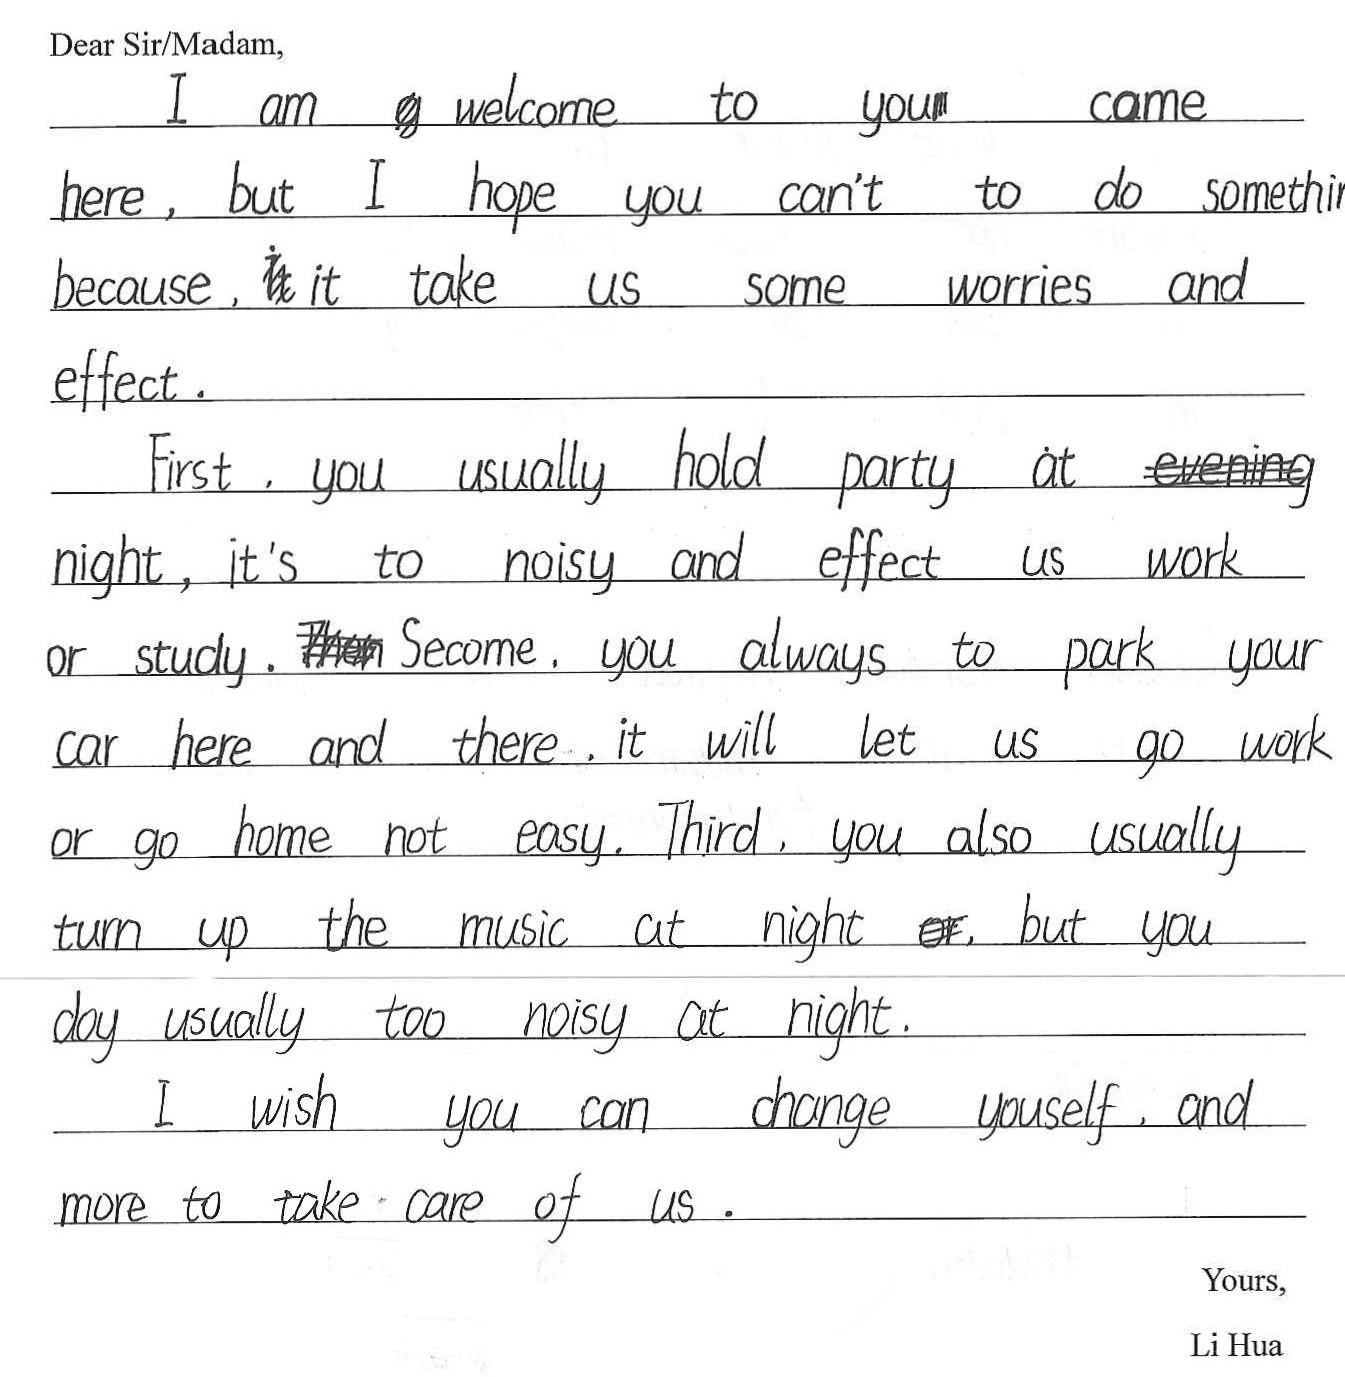 Dear Sir/Madam,
I am welcome to you came
here, but I hope you can't to do somethin
because, it take us some worries and
effect.
First, you usually hold party at evening
night, it's to noisy and effect us work
or study. Then Secome, you always to park your
car here and there, it will let us go work
or go home not easy. Third, you also usually
turn up the music at night or, but you
day usually too noisy at night.
I wish you can change youself, and
more to take care of us.
Yours,
Li Hua